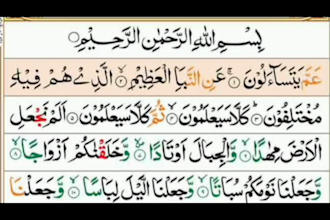 بِسْمِ اللهِ الرَّحْمٰنِ الرَّحِیْمِ
عَمَّ یَتَسَآءَلُوْنَ ۝۱ عَنِ النَّبَاِ الْعَظِیْمِ ۝۲ الَّذِیْ هُمْ فِیْهِ
مُخْتَلِفُوْنَ ۝۳ كَلَّا سَیَعْلَمُوْنَ ۝۴ ثُمَّ كَلَّا سَیَعْلَمُوْنَ ۝۵ اَلَمْ نَجْعَلِ
الْاَرْضَ مِهٰدًا ۝۶ وَّالْجِبَالَ اَوْتَادًا ۝۷ وَّخَلَقْنٰكُمْ اَزْوَاجًا ۝۸
وَّجَعَلْنَا نَوْمَكُمْ سُبَاتًا ۝۹ وَّجَعَلْنَا الَّیْلَ لِبَاسًا ۝۱۰ وَّجَعَلْنَا